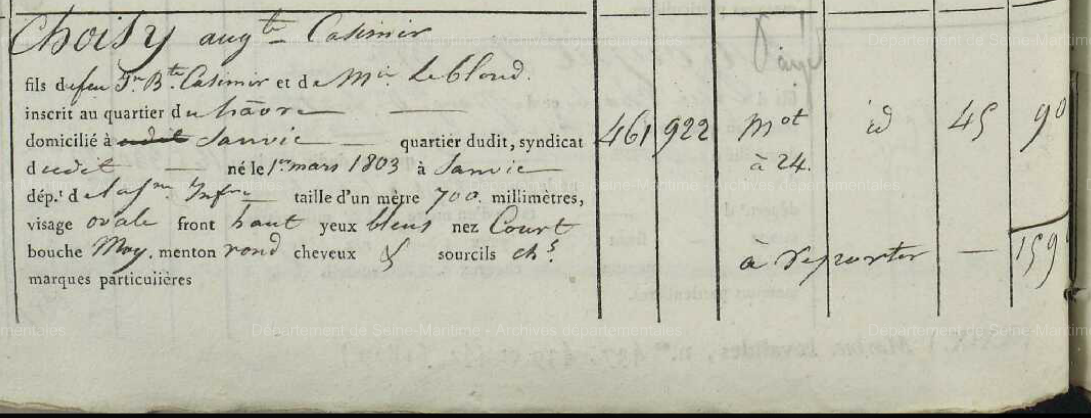 Choisy aug.te Casimir
fils de feu J.n B.te Casimir et de M.ie Leblond.
inscrit au quartier du hâvre
domicilié à audit Sanvic quartier dudit, syndicat 461 922 M.ot id 45 90
dudit né le 1.er mars 1803 à Sanvic à 24.
dép.t de la S.ne Inf.re taille d'un mètre 700. millimètres,
visage ovale front haut yeux bleus nez Court
bouche Moy. menton rond cheveux & sourcils ch.s à reporter — 159
marques particulières
Département de Seine-Maritime - Archives départementales